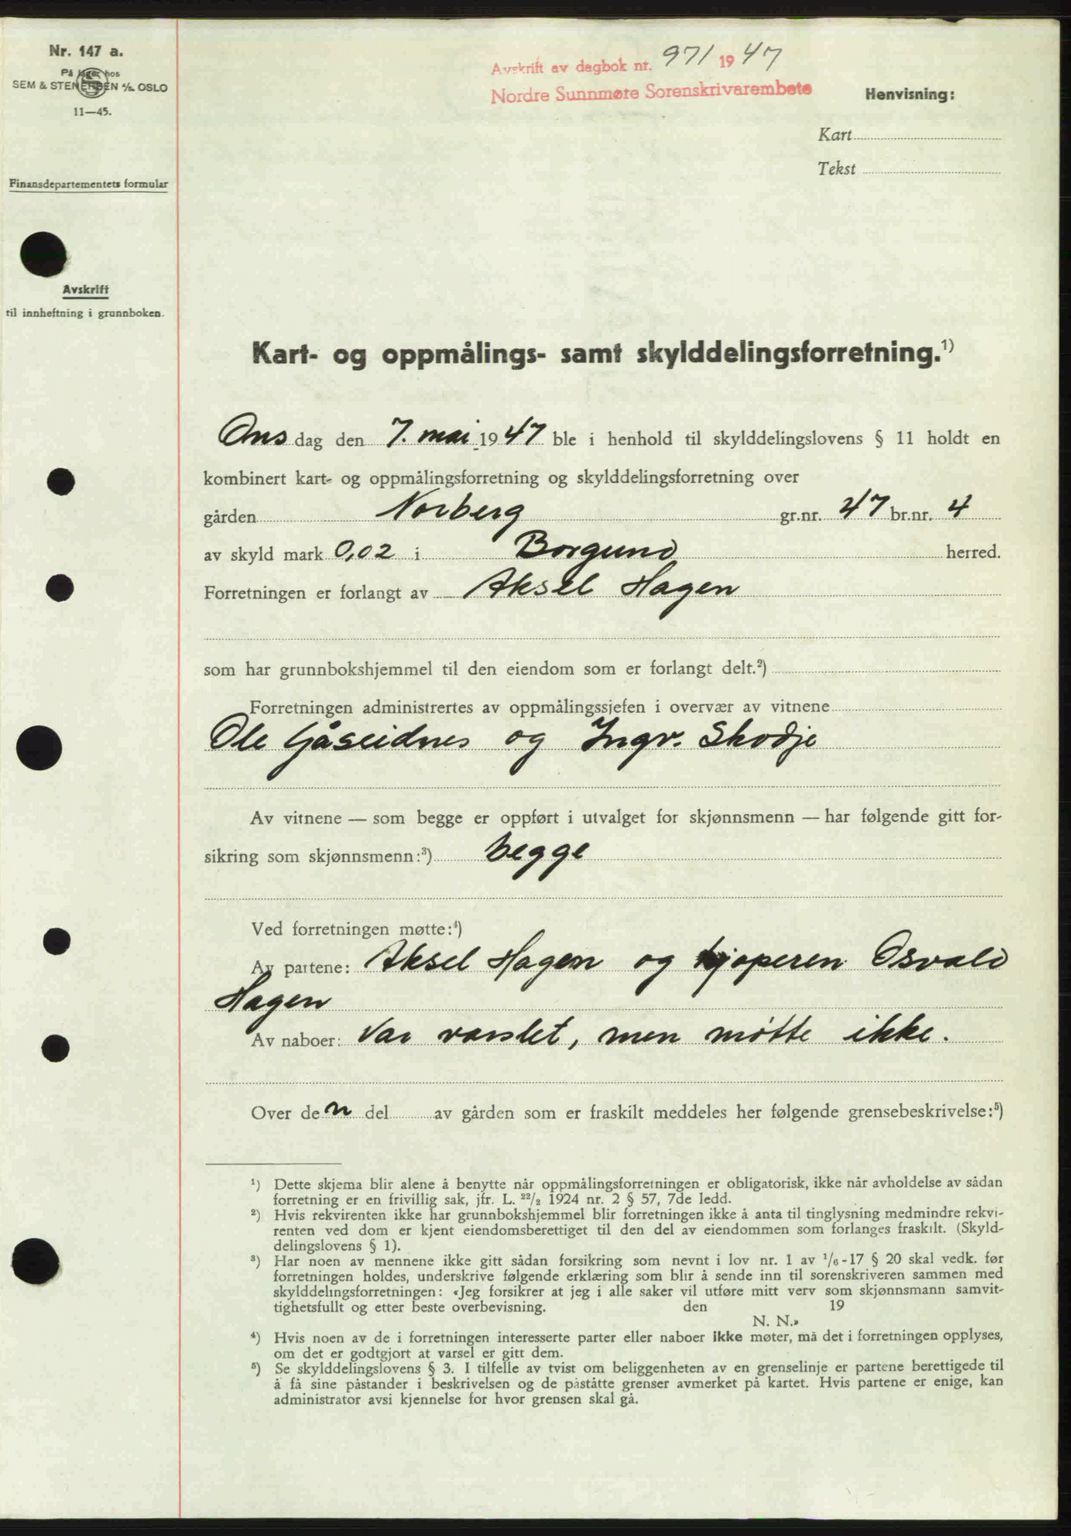 Nr. 147 a.
På lager hos
SEM & STENERSEN A/S. OSLO
11—45.
Finansdepartementets formular
Avskrift
til innheftning i grunnboken.
Avskrift av dagbok nr. 971 1947
Nordre Sunnmøre Sorenskrivarembete
Henvisning:
Kart
Tekst
Kart- og oppmålings- samt skylddelingsforretning.¹)
Onsdag den 7. mai 1947 ble i henhold til skylddelingslovens § 11 holdt en
kombinert kart- og oppmålingsforretning og skylddelingsforretning over
gården Norberg gr.nr. 47 br.nr. 4
av skyld mark 0,02 i Borgund herred.
Forretningen er forlangt av Aksel Hagen
som har grunnbokshjemmel til den eiendom som er forlangt delt.²)
Forretningen administrertes av oppmålingssjefen i overvær av vitnene
Ole Gåseidnes og Ingv. Skodje
Av vitnene — som begge er oppført i utvalget for skjønnsmenn — har følgende gitt for-
sikring som skjønnsmenn:³) begge
Ved forretningen møtte:⁴)
Av partene: Aksel Hagen og kjøperen Osvald
Hagen
Av naboer: Var varslet, men møtte ikke.
Over den del av gården som er fraskilt meddeles her følgende grensebeskrivelse:⁵)
¹) Dette skjema blir alene å benytte når oppmålingsforretningen er obligatorisk, ikke når avholdelse av sådan
forretning er en frivillig sak, jfr. L. ²²/₂ 1924 nr. 2 § 57, 7de ledd.
²) Hvis rekvirenten ikke har grunnbokshjemmel blir forretningen ikke å anta til tinglysning medmindre rekvi-
renten ved dom er kjent eiendomsberettiget til den del av eiendommen som forlanges fraskilt. (Skyld-
delingslovens § 1).
³) Har noen av mennene ikke gitt sådan forsikring som nevnt i lov nr. 1 av ¹/₆-17 § 20 skal vedk. før
forretningen holdes, underskrive følgende erklæring som blir å sende inn til sorenskriveren sammen med
skylddelingsforretningen: «Jeg forsikrer at jeg i alle saker vil utføre mitt verv som skjønnsmann samvit-
tighetsfullt og etter beste overbevisning. den 19
N. N.»
⁴) Hvis noen av de i forretningen interesserte parter eller naboer ikke møter, må det i forretningen opplyses,
om det er godtgjort at varsel er gitt dem.
⁵) Se skylddelingslovens § 3. I tilfelle av tvist om beliggenheten av en grenselinje er partene berettigede til
å få sine påstander i beskrivelsen og de påståtte grenser avmerket på kartet. Hvis partene er enige, kan
administrator avsi kjennelse for hvor grensen skal gå.